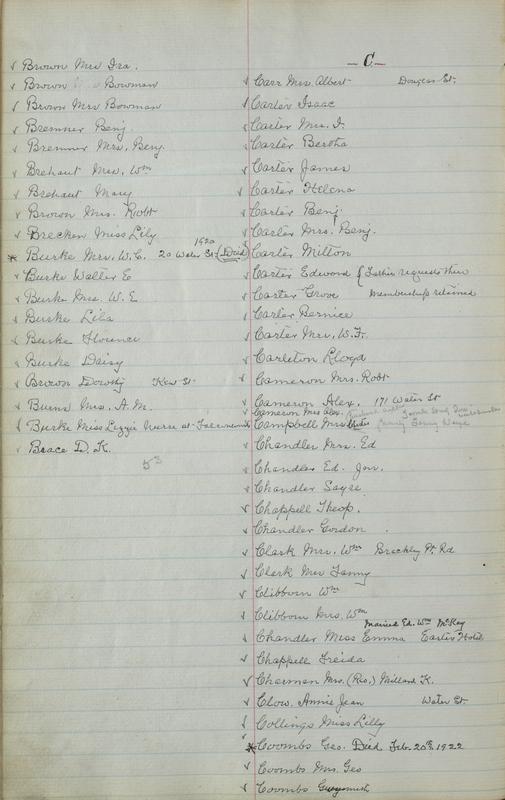 Brown Mrs Ira.
Brown Bowman
Brown Mrs Bowman
Bremner Benj.
Bremner Mrs. Benj.
Brehaut Mrs. Wm
Brehaut Mary
Brown Mrs. Robt
Brecken Miss Lily
1920
Burke Mrs. W.C. 20 Water St. (Died)
Burke Walter E
Burke Mrs. W. E
Burke Lila
Burke Florence
Burke Daisy
Brown Dorothy Kew St
Burns Mrs. A. M.
Burke Miss Lizzie Nurse at
Brace D. K.
53
- C -
Carr Mrs. Albert Douglas St.
Carter Isaac
Carter Mrs. I.
Carter Bertha
Carter James
Carter Helena
Carter Benj.
Carter Mrs. Benj.
Carter Milton
Carter Edward { Father requests their
Carter Grove membership retained
Carter Bernice
Carter Mrs. W. F.
Carleton Lloyd
Cameron Mrs. Robt
Cameron Alex. 171 Water St
Cameron Mrs Alex.
Campbell Mrs
Chandler Mrs. Ed
Chandler Ed. Jnr.
Chandler Sayre
Chappell Theop.
Chandler Gordon
Clark Mrs. Wm Brackley Pt. Rd
Clark Miss Fanny
Clibborn Wm
Clibborn Mrs. Wm
Married Ed. Wm McKay
Chandler Miss Emma Easter Hotel
Chappell Freida
Charman Mrs. (Rev.) Millard K.
Clow. Annie Jean Water St.
Collings Miss Lilly
Coombs Geo. Died Feb. 20th 1922
Coombs Mrs. Geo
Coombs